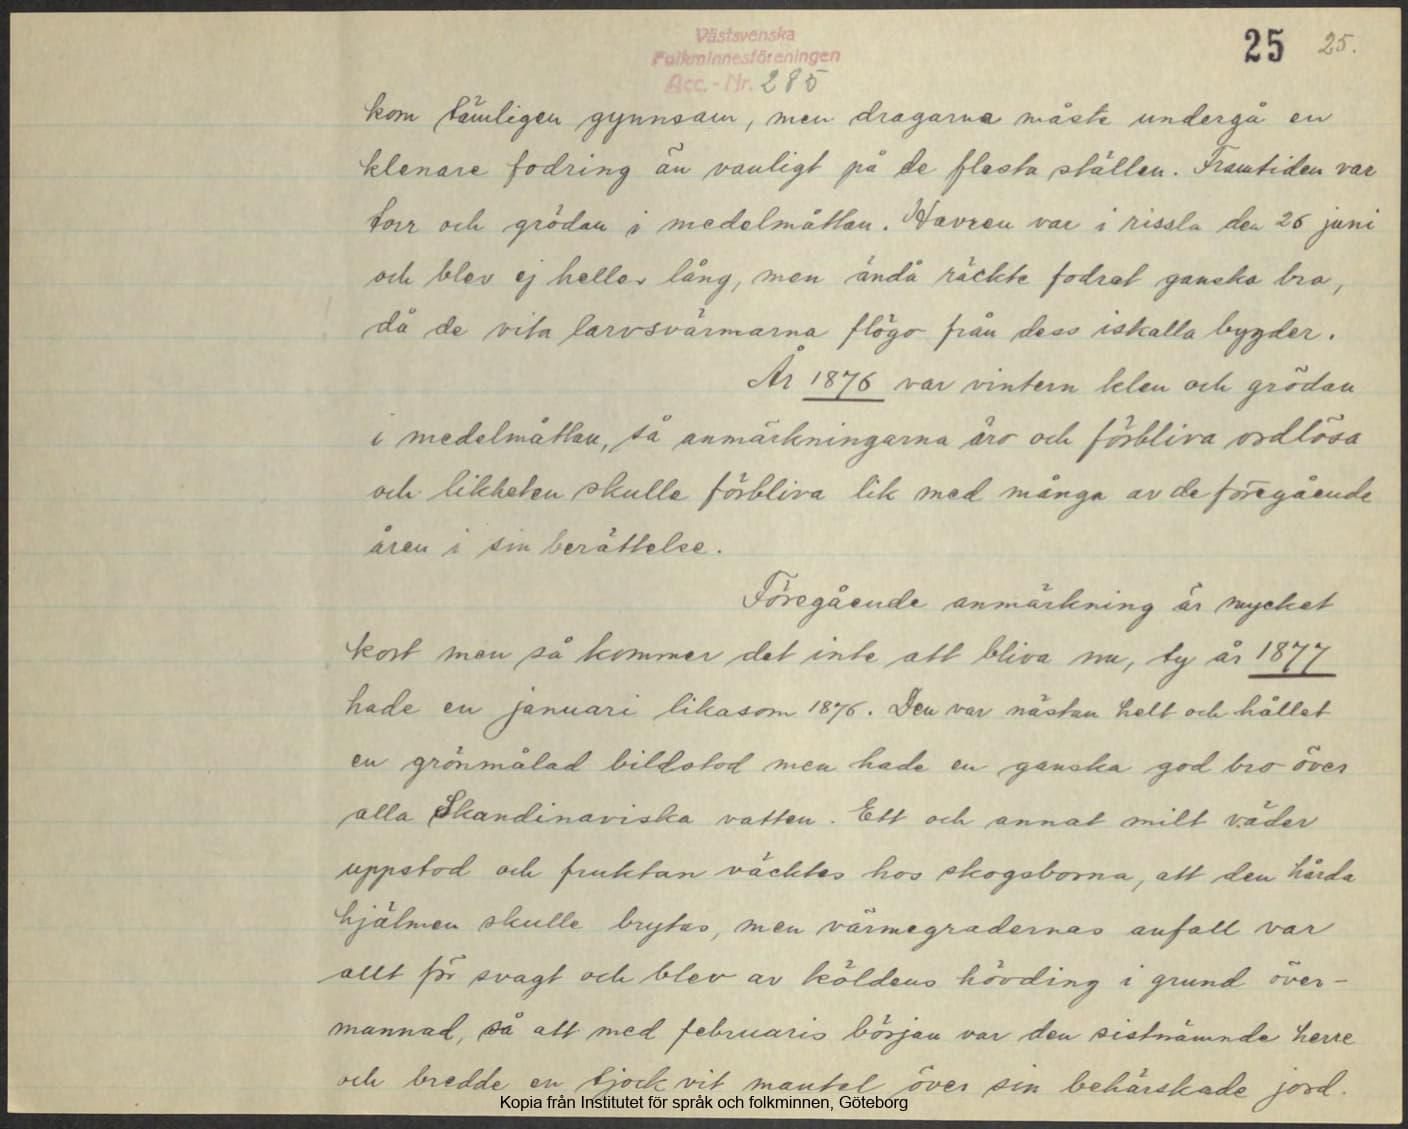 Västsvenska
Folkminnesföreningen
Acc.-Nr. 285
25 25.
kom tämligen gynnsam, men dragarna måste undergå en
klenare fodring än vanligt på de flesta ställen. Framtiden var
torr och grödan i medelmåttan. Havren var i rissla den 26 juni
och blev ej heller lång, men ändå räckte fodret ganska bra,
då de vita larvsvärmarna flögo från dess iskalla bygder.
År 1876 var vintern klen och grödan
i medelmåttan, så anmärkningarna äro och förbliva ordlösa
och likheten skulle förbliva lik med många av de föregående
åren i sin berättelse.
Föregående anmärkning är mycket
kort men så kommer det inte att bliva nu, ty år 1877
hade en januari likasom 1876. Den var nästan helt och hållet
en grönmålad bildstod men hade en ganska god bro över
alla Skandinaviska vatten. Ett och annat milt väder
uppstod och fruktan väcktes hos skogsborna, att den hårda
hjälmen skulle brytas, men värmegradernas anfall var
allt för svagt och blev av köldens hövding i grund över-
mannad, så att med februaris början var den sistnämnde herre
och bredde en tjock vit mantel över sin behärskade jord.
Kopia från Institutet för språk och folkminnen, Göteborg